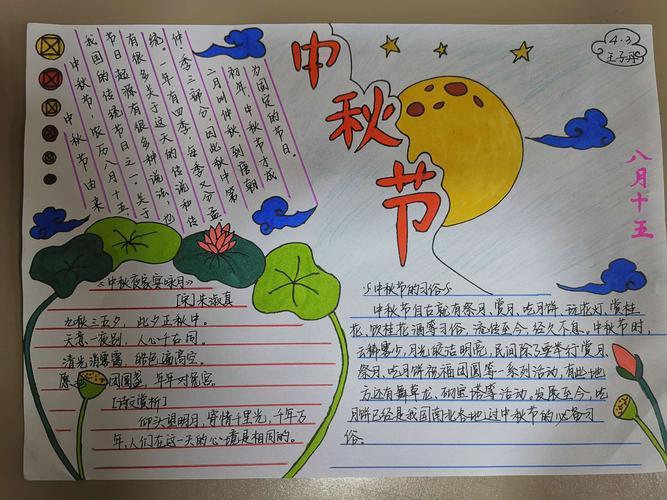 中秋节
4.3
王子彤
八月十五
中秋节由来
中秋节，农历八月十五，
我国的传统节日之一。关于
节日起源有很多种说法，也
有很多关于这天的传说和传
统。一年有四季，每季又分孟
仲季三部分，因此秋中第
二月叫仲秋，到唐朝
初年，中秋节才成
为固定的节日。
《中秋夜家宴咏月》
[宋]朱淑真
九秋三五夕，此夕正秋中。
天意一夜别，人心千古同。
清光消雾霭，皓色遍高空。
愿 团圆盏，年年对兔宫。
[诗文赏析]
仰头望明月，寄情千里光，千年万
年，人们在这一天的心境是相同的。
中秋节的习俗
中秋节自古就有祭月、赏月、吃月饼、玩花灯、赏桂
花、饮桂花酒等习俗，流传至今，经久不息。中秋节时，
云稀雾少，月光皎洁明亮，民间除了要举行赏月、
祭月、吃月饼祝福团圆等一系列活动，有些地
方还有舞草龙、砌宝塔等活动。发展至今，吃
月饼已经是我国南北各地过中秋节的必备习
俗。